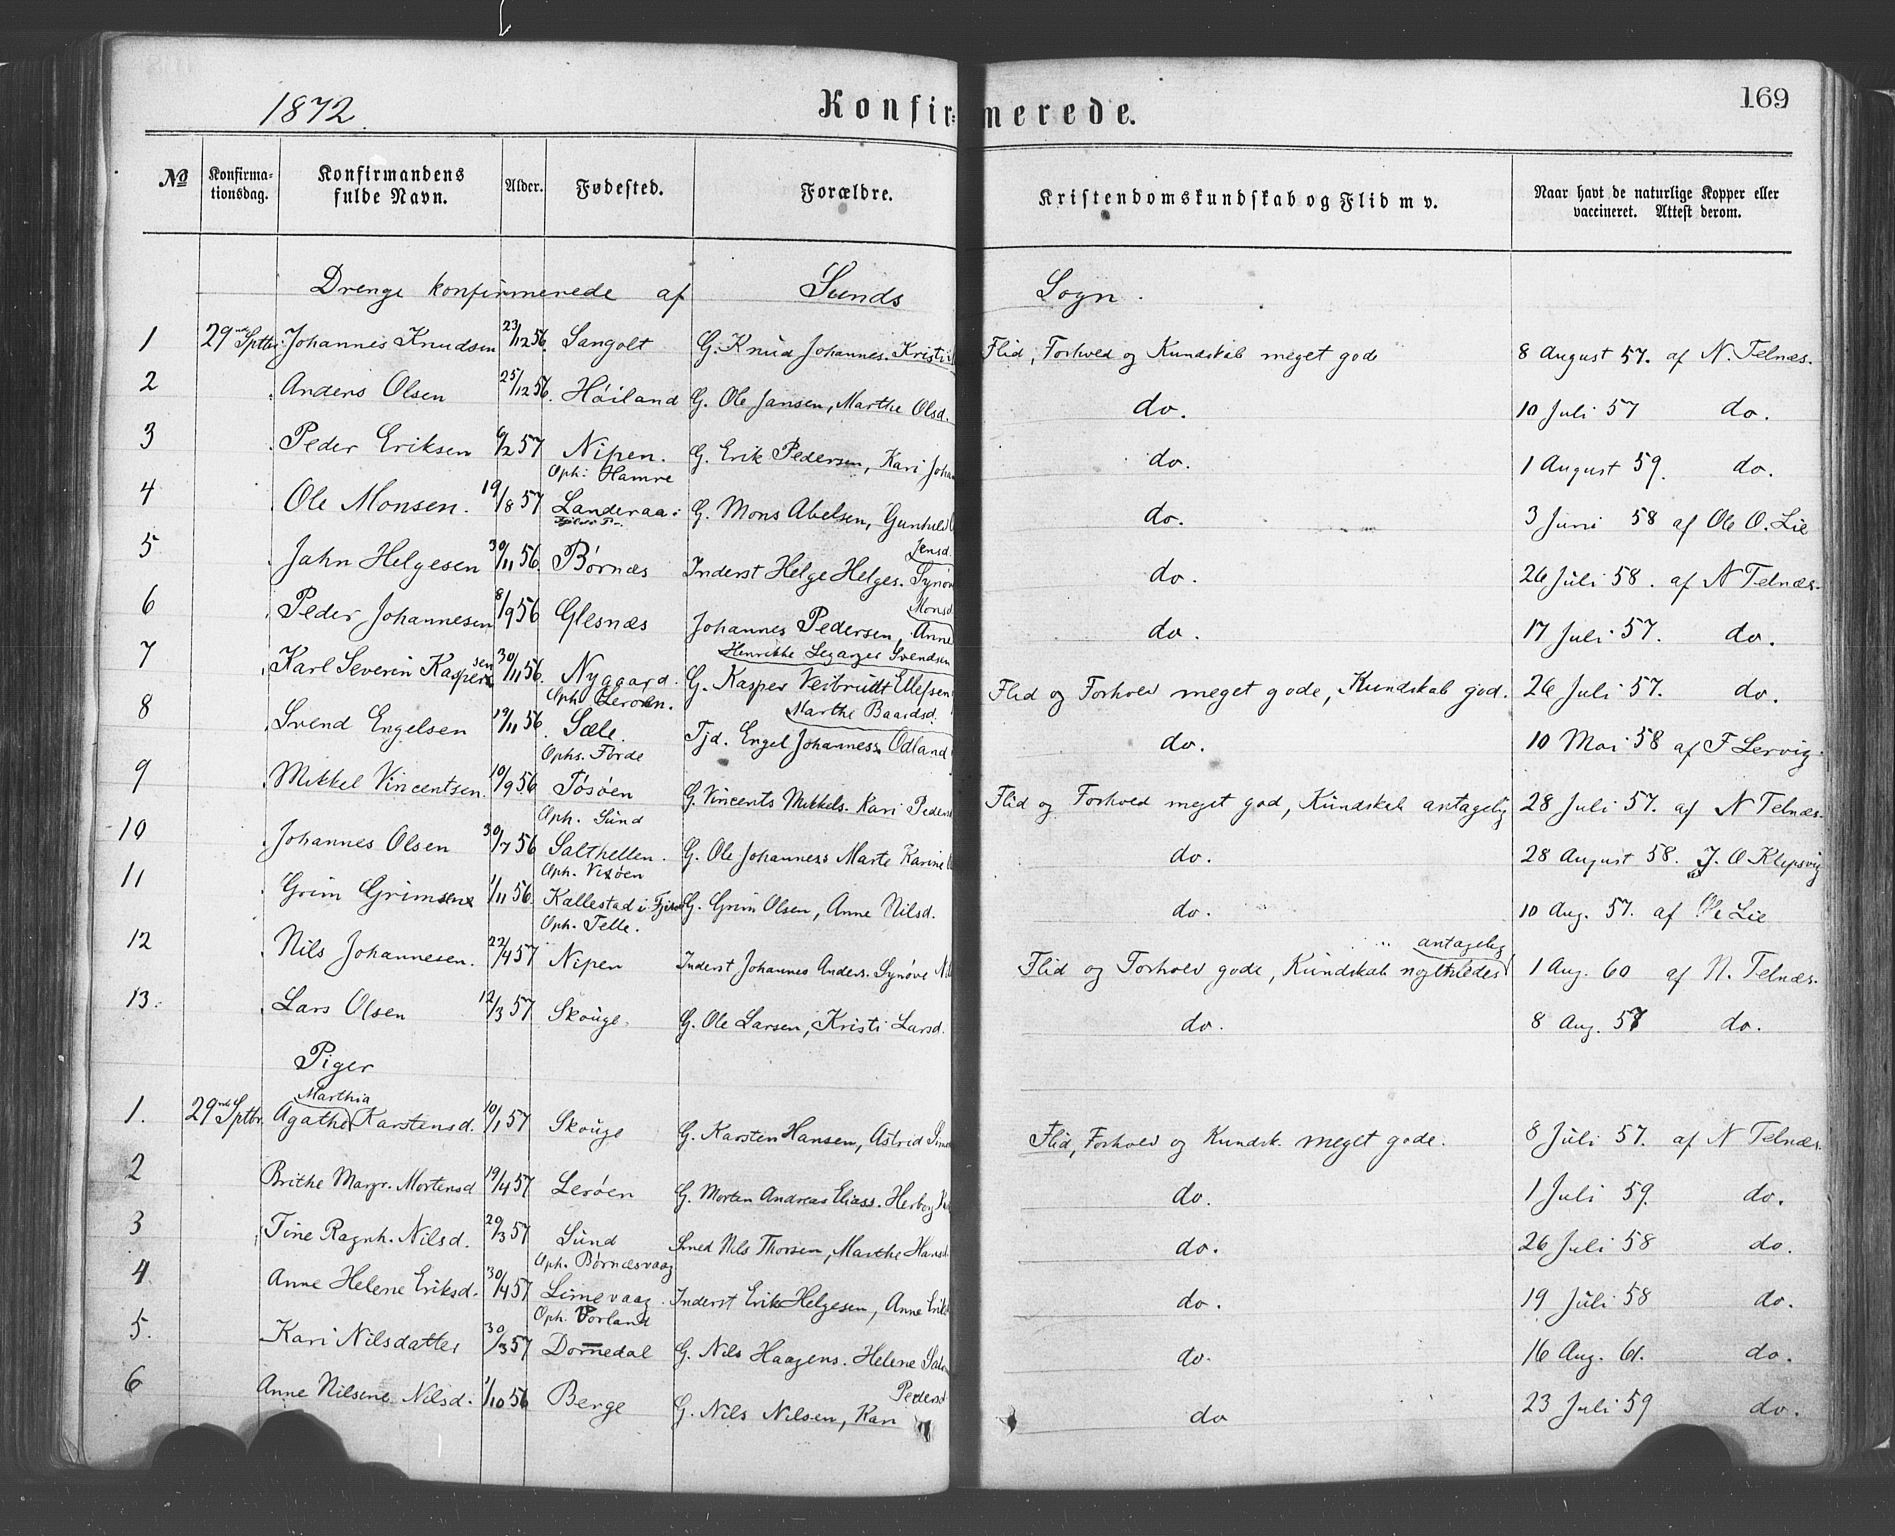 1872.
Konfir= merede.
169
No
Konfirma-
tionsdag.
Konfirmandens
fulde Navn.
Alder.
Fødested.
Forældre.
Kristendomskundskab og Flid m v.
Naar havt de naturlige Kopper eller
vaccineret. Attest derom.
Drenge konfirmerede af Sunds Sogn.
1 29nde Sptbr. Johannes Knudsen 23/12 56. Sangolt G. Knud Johannes. Kristi Flid, Forhold og Kundskab meget gode 8 August 57. af N. Telnæs.
2 Anders Olsen 25/12 56. Høiland G. Ole Jansen, Marthe Olsd. do. 10 Juli 57 do.
3 Peder Eriksen 6/2 57 Nipen. G. Erik Pedersen, Kari Johan do. 1 August 59. do.
Oph: Hamre
4 Ole Monsen. 19/8 57 Landeraa: G. Mons Abelsen, Gunhild do. 3 Juni 58 af Ole O. Lie
Jensd.
5 Jahn Helgesen 30/11 56. Børnæs Inderst Helge Helges. Synøv do. 26 Juli 58. af N Telnæs.
Monsd
6 Peder Johannesen 8/9 56 Glesnæs Johannes Pedersen, Anne do. 17 Juli 57. do.
Henrikke Svendsen
7 Karl Severin Kaspersen 30/11 56. Nygaard. G. Kasper Veibrudt Ellefsen Flid og Forhold meget gode, Kundskab god. 26 Juli 57. do.
Oph. Lerøen.
Marthe Baardsd.
8 Svend Engelsen 19/11 56. Sæle. Tjd. Engel Johanness. Odland do. 10 Mai 58 af F Lervig.
Ophs. Forde
9 Mikkel Vincentsen. 10/9 56 Tøsøen G. Vincents Mikkels. Kari Peders Flid og Forhold meget god, Kundskab antagelig 28 Juli 57. af N Telnæs.
Oph. Sund
10 Johannes Olsen 30/7 56 Salthellen. G. Ole Johanness Marte Karine do. 28 August 58. J. O Klepsvig
Oph. Vixøen
11 Grim Grimsen 1/11 56. Kallestad i G. Grim Olsen, Anne Nilsd. do. 10 Aug. 57. af Ole Lie
Oph. Telle.
antagelig
12 Nils Johannesen. 22/4 57 Nipen Inderst Johannes Anders. Synøve Flid og Forhold gode, Kundskab nogenledes 1 Aug. 60 af N. Telnæs.
13. Lars Olsen 12/3 57 Skouge. G. Ole Larsen, Kristi Larsd. do. 8 Aug. 57 do.
Piger
Marthia
1. 29nde Sptbr. Agathe Karstensd. 10/1 57 Skouge G. Karsten Hansen, Astrid Flid, Forhold og Kundsk. meget gode. 8 Juli 57. af N Telnæs.
2 Brithe Margr. Mortensd 19/4 57 Lerøen G. Morten Andreas Eliass. Herborg do. 1 Juli 59. do.
3 Tine Ragnh. Nilsd. 29/3 57 Sund Smed Nils Thorsen, Marthe Hansd. do. 26 Juli 58 do.
Oph. Børnæsvaag
4 Anne Helene Eriksd. 30/4 57 Limevaag. Inderst Erik Helgesen, Anne Erik do. 19 Juli 58 do.
Oph. Vorland
5. Kari Nilsdatter 30/3 57 Dommedal G. Nils Haagens. Helene do. 16 Aug. 61. do.
Pedersd
6 Anne Nilsine Nilsd. 1/10 56 Berge G. Nils Nilsen, Kari do 23 Juli 59 do.